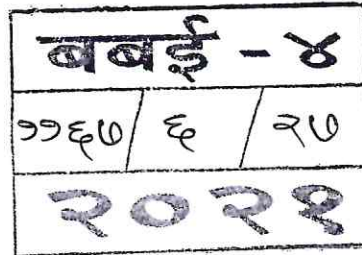 बबई - ४
११६७/६/२७
२०२१